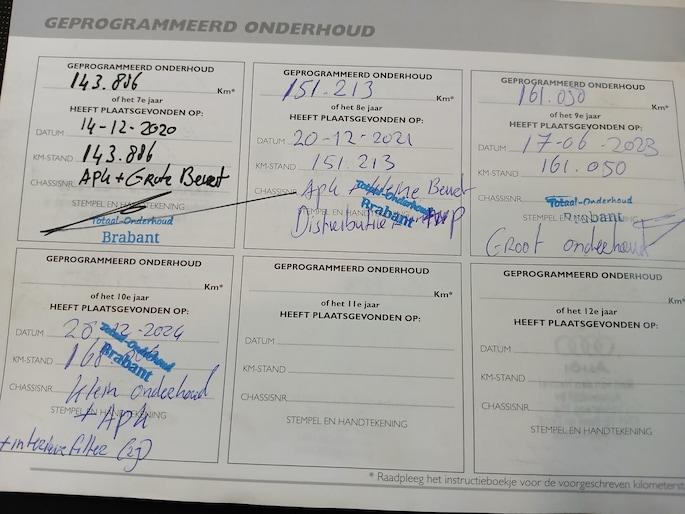 GEPROGRAMMEERD ONDERHOUD
GEPROGRAMMEERD ONDERHOUD
143.886 Km*
of het 7e jaar
HEEFT PLAATSGEVONDEN OP:
DATUM 14-12-2020
KM-STAND 143.886
CHASSISNR APK + Grote Beurt
STEMPEL EN HANDTEKENING
Totaal-Onderhoud
Brabant
GEPROGRAMMEERD ONDERHOUD
151.213 Km*
of het 8e jaar
HEEFT PLAATSGEVONDEN OP:
DATUM 20-12-2021
KM-STAND 151.213
CHASSISNR APK + Kleine Beurt
STEMPEL EN
Totaal-Onderhoud
Brabant
Distributie
GEPROGRAMMEERD ONDERHOUD
161.050 Km*
of het 9e jaar
HEEFT PLAATSGEVONDEN OP:
DATUM 17-06-2023
KM-STAND 161.050
CHASSISNR
Totaal-Onderhoud
STEMPEL EN HANDTEKENING
Brabant
Groot onderhoud
GEPROGRAMMEERD ONDERHOUD
Km*
of het 10e jaar
HEEFT PLAATSGEVONDEN OP:
DATUM 12-2024
KM-STAND
Totaal-Onderhoud
Brabant
CHASSISNR Klein onderhoud
STEMPEL EN HANDTEKENING
+ APK
+ interieurfilter
GEPROGRAMMEERD ONDERHOUD
Km*
of het 11e jaar
HEEFT PLAATSGEVONDEN OP:
DATUM
KM-STAND
CHASSISNR
STEMPEL EN HANDTEKENING
GEPROGRAMMEERD ONDERHOUD
Km*
of het 12e jaar
HEEFT PLAATSGEVONDEN OP:
DATUM
KM-STAND
CHASSISNR
STEMPEL EN HANDTEKENING
* Raadpleeg het instructieboekje voor de voorgeschreven